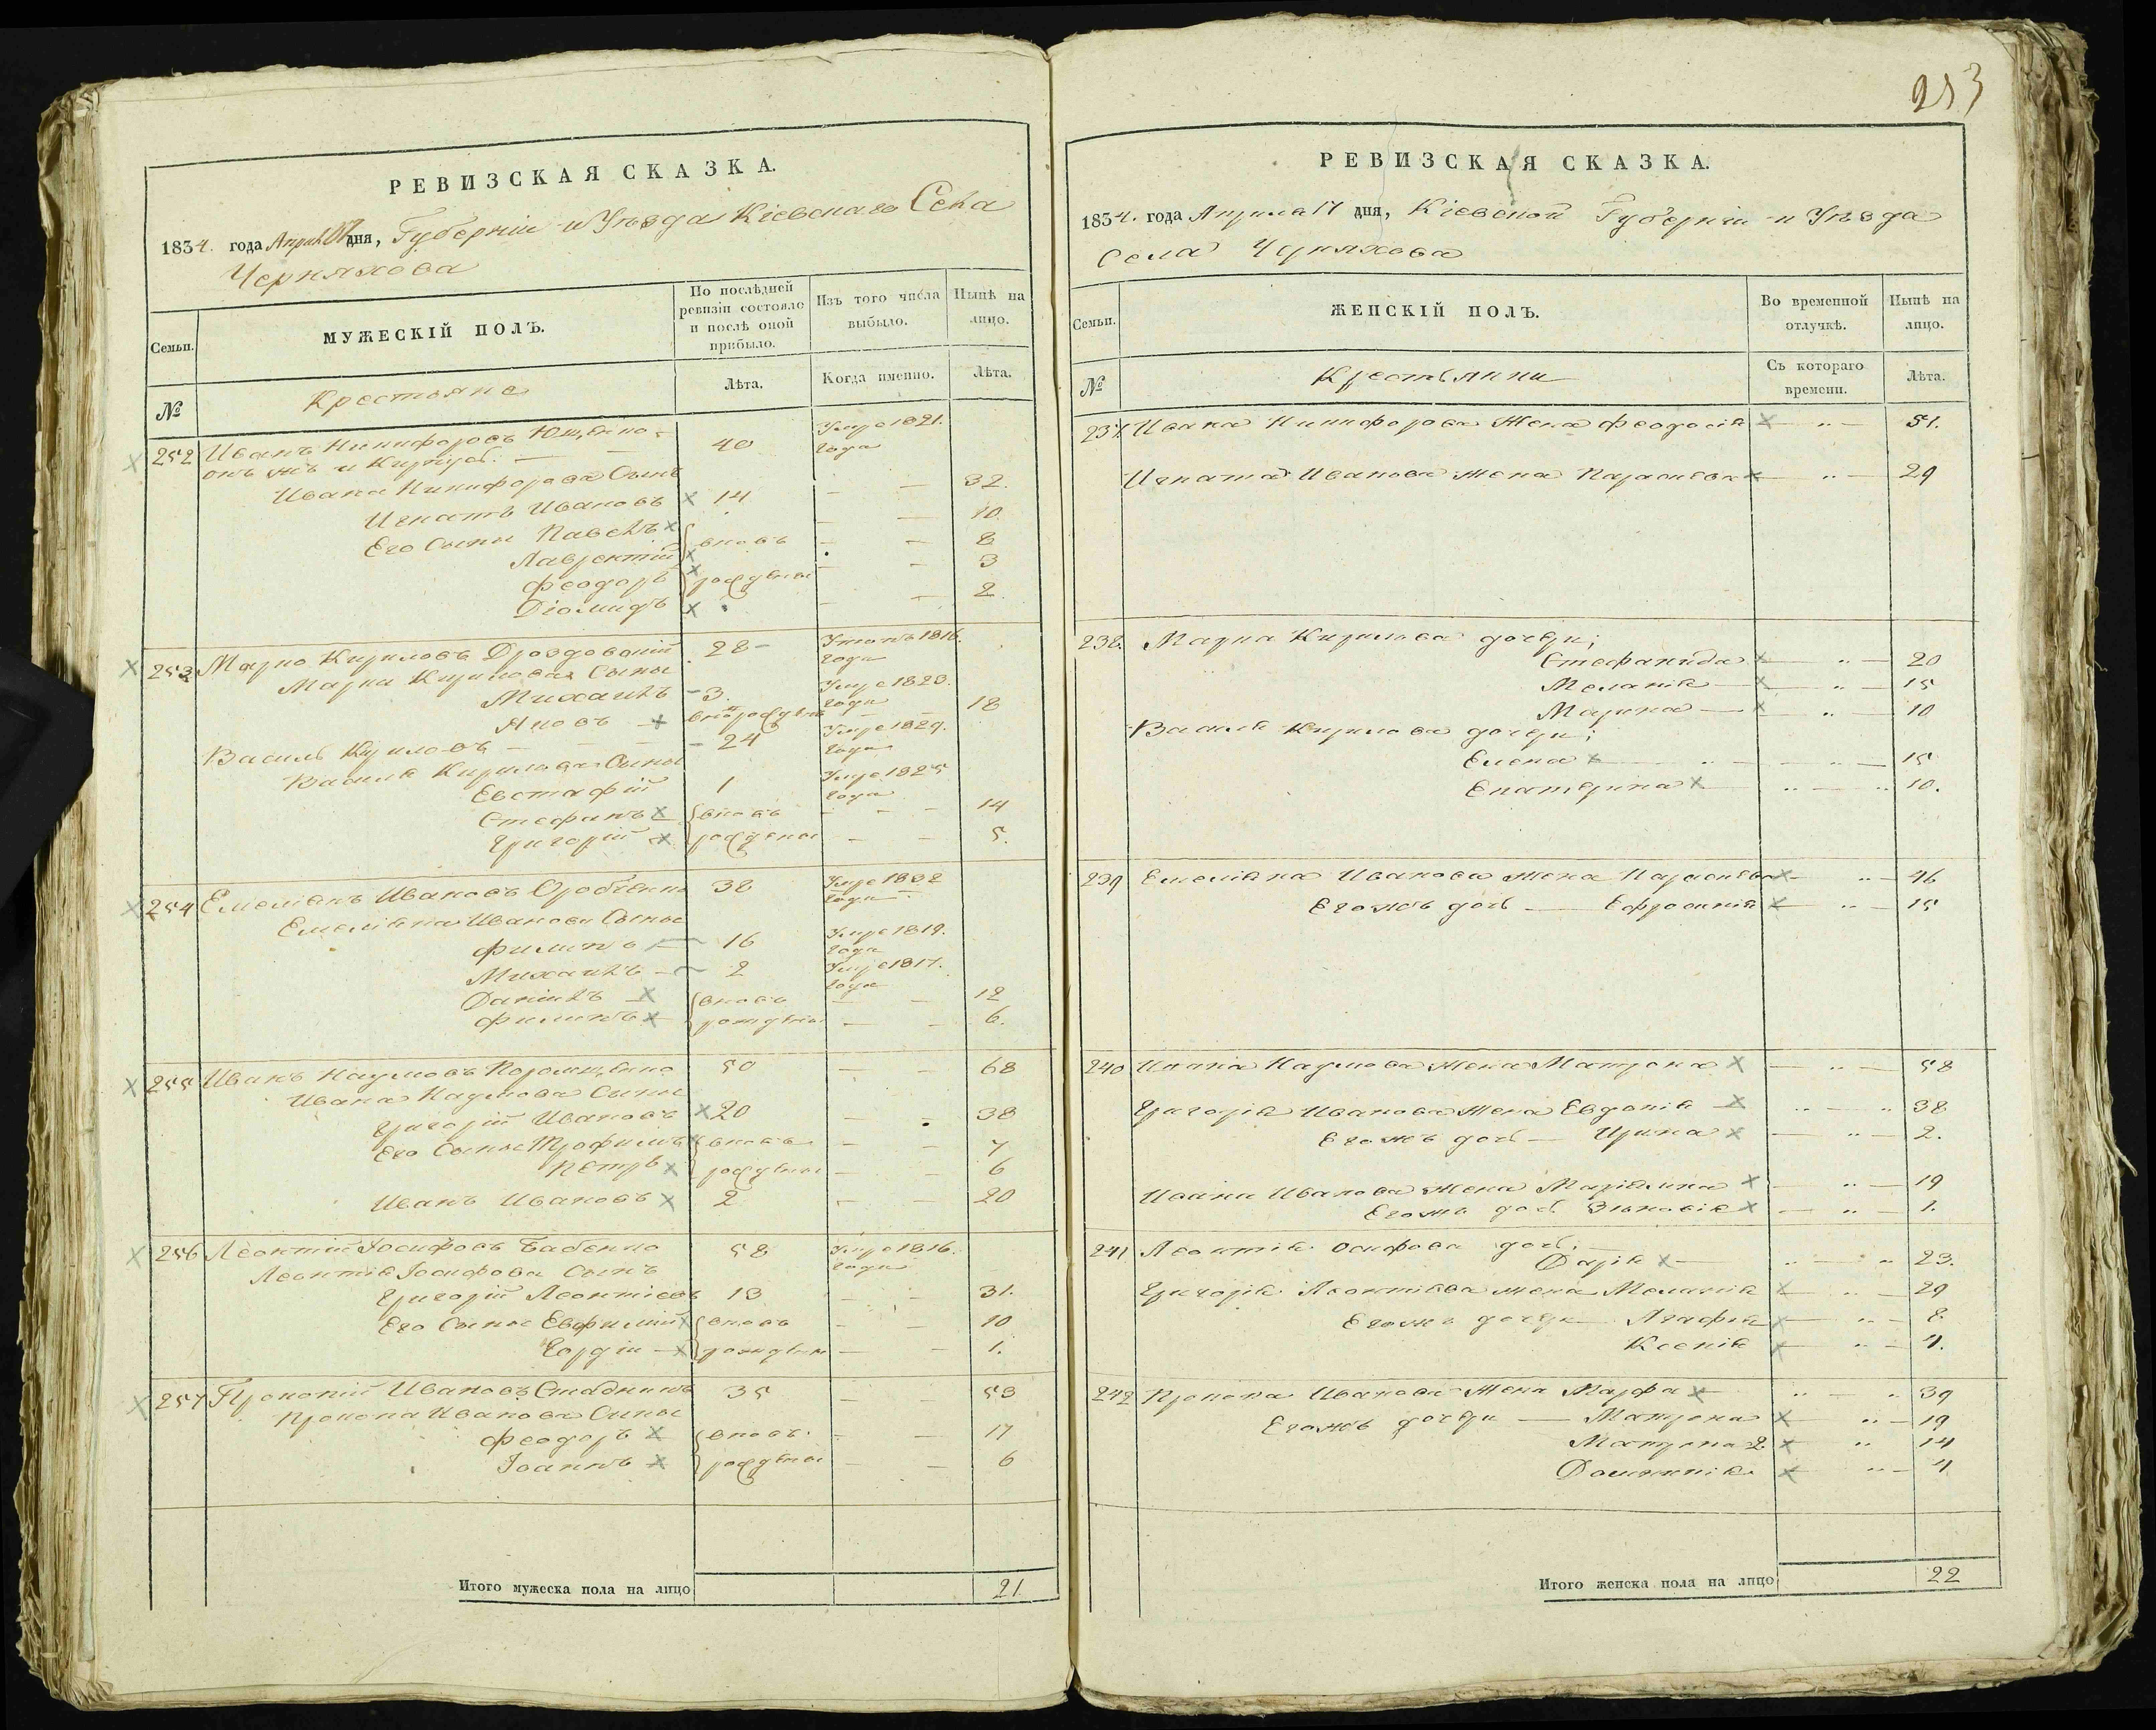 РЕВИЗСКАЯ СКАЗКА.
1834. года Априля 17 дня, Губерніи и Уѣзда Кіевскаго Села
Черняхова
Семьи.
МУЖЕСКІЙ ПОЛЪ.
По послѣдней ревизіи состояло и послѣ оной прибыло.
Изъ того числа выбыло.
Нынѣ на лицо.
№
Крестьяне
Лѣта.
Когда именно.
Лѣта.
252 Иванъ Никифоровъ 40 Умре 1821.
онъ же и года
Ивана Никифорова Сынъ
Игнатъ Ивановъ 14 — — 32.
Его Сыны Павелъ вновь — — 10
Лаврентій — — 8
Феодоръ рожденые — — 3
Діомидъ — — 2.
253 Марко Кириловъ Дроздовскій 28 Умре 1816.
Марка Кирилова Сыны года
Михаилъ 3. Умре 1823. года
Яковъ вноврожденъ — — 18
Василь Кириловъ 24 Умре 1829. года
Василя Кирилова Сыны
Евстафій 1 Умре 1825 года
Стефанъ вновь — — 14
Григорій рождены — — 5.
254 Емеліанъ Ивановъ 38 Умре 1832 года
Емеліана Иванова Сыны
Филипъ 16 Умре 1819. года
Михаилъ 2 Умре 1817. года
Даніилъ вновь — — 12
Филипъ рождены — — 6.
255 Иванъ Наумовъ 50 — — 68
Ивана Наумова Сыны
Григорій Ивановъ 20 — — 38
Его Сыны Трофимъ вновь — — 7
Петръ рождены — — 6
Иванъ Ивановъ 2 — — 20
256 Леонтій Іосифовъ Бабенко 58 Умре 1816.
Леонтія Іосифова Сынъ года
Григорій Леонтіевъ 13 — — 31.
Его Сыны Евфимій вновь — — 10
Гордій рождены — — 1.
257 Прокопій Ивановъ Стадникъ 35 — — 53
Прокопа Иванова Сыны
Феодоръ вновь — — 17
Іоаннъ рождены — — 6
Итого мужеска пола на лицо 21
253
РЕВИЗСКАЯ СКАЗКА.
1834. года Априля 17 дня, Кіевской Губерніи и Уѣзда
Села Черняхова
Семьи.
ЖЕНСКІЙ ПОЛЪ.
Во временной отлучкѣ.
Нынѣ на лицо.
№
Крестьянки
Съ котораго времени.
Лѣта.
237. Ивана Никифорова Жена Феодосія — „ — 51.
Игната Иванова Жена Параскева — „ — 29
238. Марка Кирилова дочери;
Стефанида — „ — 20
Меланія — „ — 15
Марина — „ — 10
Василя Кирилова дочери;
Елена — „ — 15
Екатерина „ — „ 10.
239 Емеліана Иванова жена Параскева — „ — 46
Егожъ дочь — Ефросинія — „ — 15
240 Ивана Наумова Жена Матрона — „ — 58
Григорія Иванова Жена Евдокія „ — „ 38
Егожъ дочь — Ирина — „ — 2.
Ивана Иванова жена Маріямна — „ — 19
Егожъ дочь Зѣновія — „ — 1.
241 Леонтія Осифова дочь;
Дарія „ — „ 23.
Григорія Леонтіева жена Меланія — „ — 29
Егожъ дочери Агафія — „ — 8.
Ксенія — „ — 4.
242 Прокопа Иванова Жена Марфа „ — „ 39
Егожъ дочери — Матрона — „ — 19
Матрона 2. — „ 14
Домникія — „ — 4
Итого женска пола на лицо 22